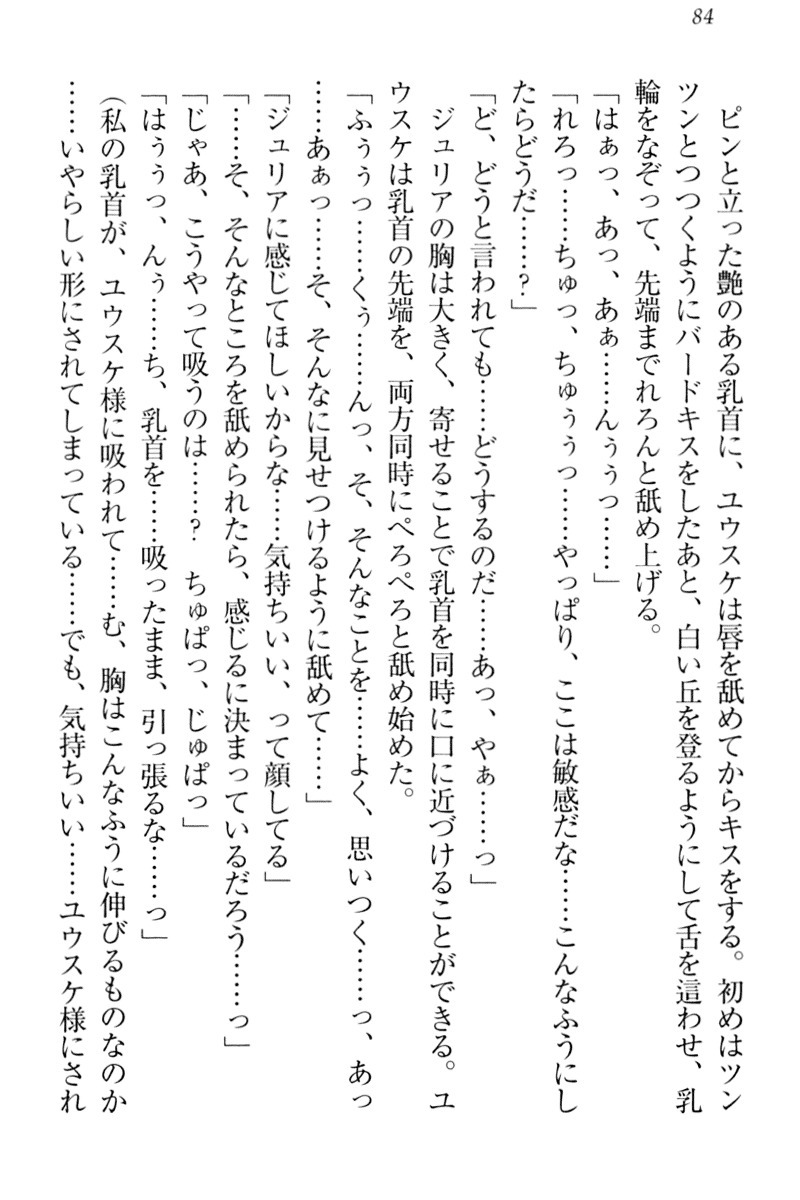 84
ピンと立った艶のある乳首に、ユウスケは唇を舐めてからキスをする。初めはツン
ツンとつつくようにバードキスをしたあと、白い丘を登るようにして舌を這わせ、乳
輪をなぞって、先端までれろんと舐め上げる。
「はぁっ、あっ、あぁ……んぅうっ……」
「れろっ……ちゅっ、ちゅぅぅっ……やっぱり、ここは敏感だな……こんなふうにし
たらどうだ……?」
「ど、どうと言われても……どうするのだ……あっ、やぁ……っ」
ジュリアの胸は大きく、寄せることで乳首を同時に口に近づけることができる。ユ
ウスケは乳首の先端を、両方同時にぺろぺろと舐め始めた。
「ふぅぅっ……くぅ……んっ、そ、そんなことを……よく、思いつく……っ、あっ
……あぁっ……そ、そんなに見せつけるように舐めて……」
「ジュリアに感じてほしいからな……気持ちいい、って顔してる」
「……そ、そんなところを舐められたら、感じるに決まっているだろう……っ」
「じゃあ、こうやって吸うのは……? ちゅぱっ、じゅぱっ」
「はぅぅっ、んぅ……ち、乳首を……吸ったまま、引っ張るな……っ」
(私の乳首が、ユウスケ様に吸われて……む、胸はこんなふうに伸びるものなのか
……いやらしい形にされてしまっている……でも、気持ちいい……ユウスケ様にされ